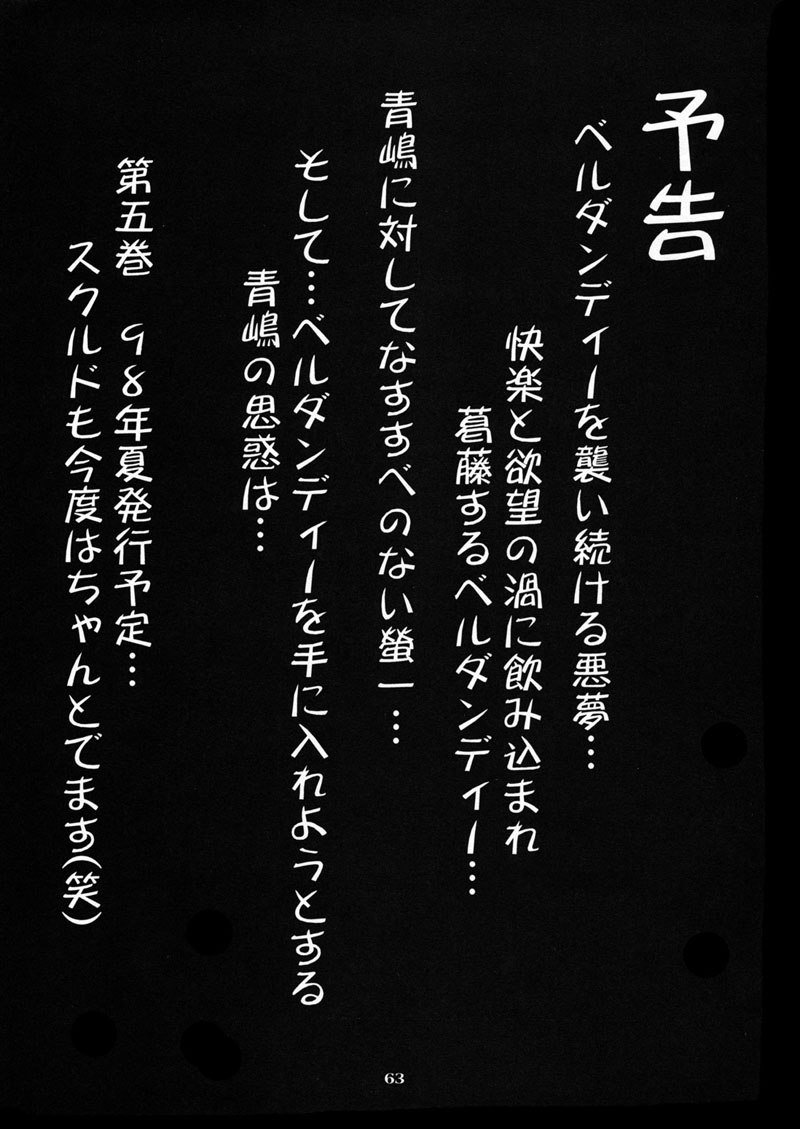 予告
ベルダンディーを襲い続ける悪夢…
快楽と欲望の渦に飲み込まれ
葛藤するベルダンディー…
青嶋に対してなすすべのない螢一…
そして…ベルダンディーを手に入れようとする
青嶋の思惑は…
第五巻　98年夏発行予定…
スクルドも今度はちゃんとでます(笑)
63